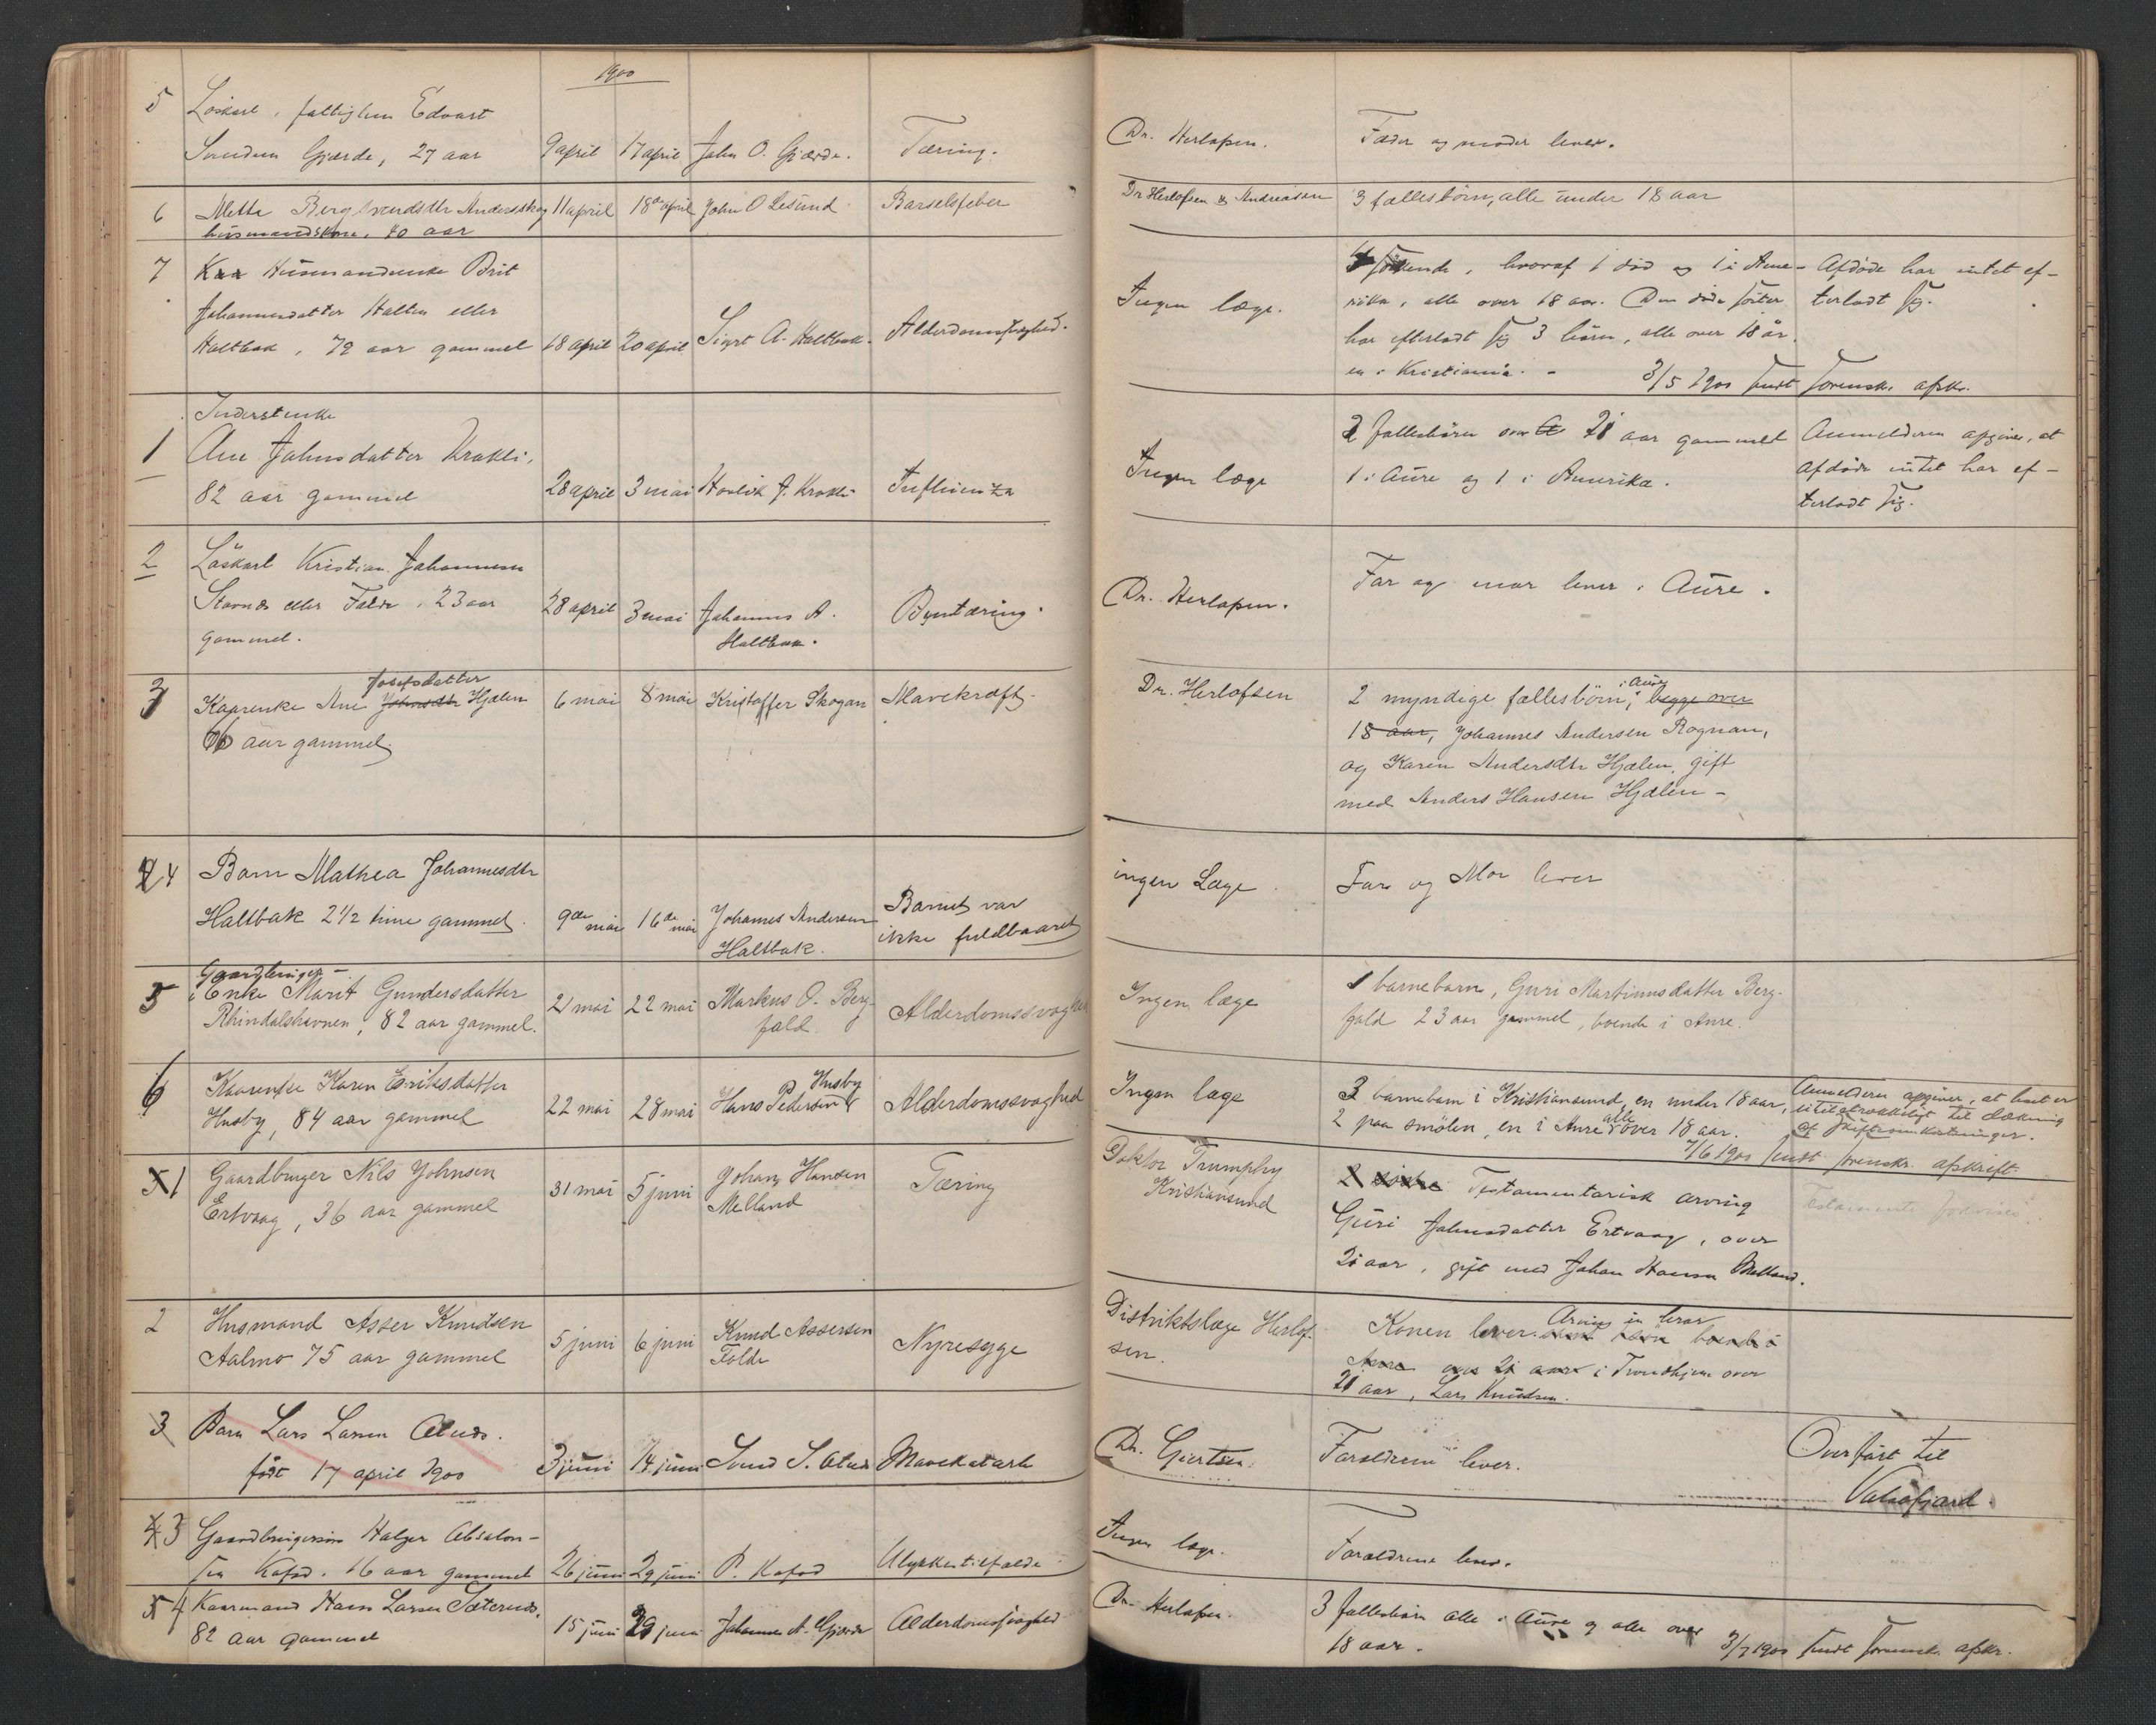 1900
5 Löskarl, fattiglem Edvart
Svendsen Gjærde, 27 aar 9 april 17 april John O. Gjærde. Tæring. Dr. Herlofsen. Fader og moder lever.
6 Mette Bergsvendsdtr Andersskog 11 april 18de april John O Lesund Barselsfeber Dr Herlofsen & Andreasen 3 fællesbörn, alle under 18 aar
husmandskone, 40 aar
7 Husmandsenke Brit
Johannesdatter Halten eller
Haltbak, 79 aar gammel 18 april 20 april Sivert A. Haltbak. Alderdomssvaghed. Ingen læge.
4 söskende, hvoraf 1 död og 1 i Ame-
rika, alle over 18 aar. Den döde söster
har efterladt sig 3 börn, alle over 18 år,
en i Kristiania. -
Afdöde har intet ef-
terladt sig.
3/5 1900 sendt sorensk. afskr.
Inderstenke
1 Ane Johnsdatter Krokli,
82 aar gammel 28 april 3 mai Hovlik J. Krokli Influenza Ingen læge
2 fællesbörn over 21 aar gammel
1 i Aure og 1 i Amerika.
Anmelderen opgiver, at
afdöde intet har ef-
terladt sig.
2 Löskarl Kristian Johannesen
Stavnæs eller Folde, 23 aar
gammel. 28 april 3 mai Johannes A.
Haltbak. Brysttæring. Dr. Herlofsen. Far og mor lever i Aure.
3 Kaarenke Ane Johnsdtr Josefsdatter Hjælen
66 aar gammel 6 mai 8 mai Kristoffer Skogan Mavekræft Dr. Herlofsen
2 myndige fællesbörn i Aure, begge over
18 aar, Johannes Andersen Rognan,
og Karen Andersdtr Hjælen, gift
med Anders Hansen Hjælen -
4 Barn Mathea Johannesdtr
Haltbak 2 1/2 time gammel. 9de mai 16de mai Johannes Andersen
Haltbak. Barnet var
ikke fuldbaaret ingen Læge. Far og Mor lever
Gaardbruger-
5 Enke Marit Gundersdatter
Rhindalshavnen, 82 aar gammel. 21 mai 22 mai Markus O. Berg-
fald. Alderdomssvaghed Ingen læge
1 barnebarn, Guri Martinusdatter Berg-
fald 23 aar gammel, boende i Aure.
6 Kaarenke Karen Eriksdatter
Husby, 84 aar gammel 22 mai 28 mai Hans Pedersen Husby Alderdomssvaghed Ingen læge
3 barnebarn i Kristiansund, en under 18 aar,
2 paa Smölen, en i Aure alle over 18 aar.
Anmelderen opgiver, at boet er
utilstrækkeligt til dækning
af skifteomkostninger.
7/6 1900 sendt sorenskr. afskrift
1 Gaardbruger Nils Johnsen
Ertvaag, 36 aar gammel 31 mai 5 juni Johan Hansen
Melland Tæring Doktor Trumphy
Kristiansund
Testamentarisk arving
Guri Johnsdatter Ertvaag, over
21 aar, gift med Johan Hansen Melland.
2 Husmand Asser Knudsen
Aalmo 75 aar gammel 5 juni 6 juni Knud Assersen
Folde Nyresyge Distriktslæge Herlof-
sen.
Konen lever.
i Trondhjem over
21 aar, Lars Knudsen.
3 Barn Lars Larsen Alnæs.
födt 17 april 1900 3 juni 14 juni Svend S. Alnæs Mavekatarh Dr. Giertsen. Forældrene lever. Overfört til
Valsöfjord.
3 Gaardbrugersön Halger Absalon-
sen Kafod. 16 aar gammel 26 juni 29 juni P. Kafod Ulykkestilfælde Ingen læge. Forældrene lever.
4 Kaarmand Hans Larsen Sæternæs.
82 aar gammel 15 juni 29 juni Johannes A. Gjærde Alderdomssvaghed Dr. Herlofsen.
3 fællesbörn alle i Aure og alle over
18 aar. 3/7 1900 sendt sorensk. afskr.